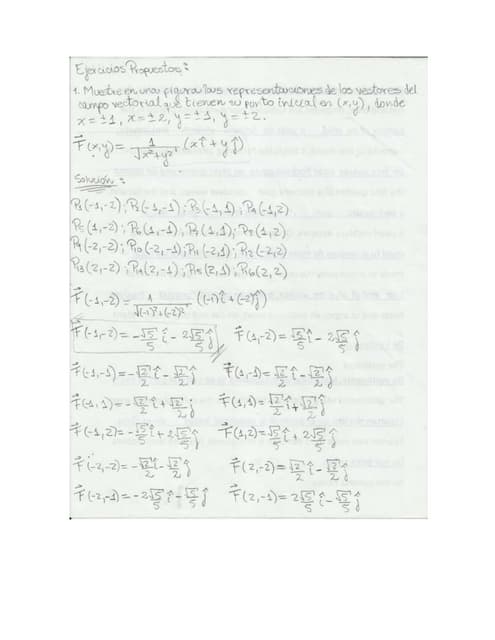 Ejercicios Propuestos:
1. Muestre en una figura las representaciones de los vectores del
campo vectorial que tienen su punto inicial en (x,y), donde
x=±1, x=±2, y=±1, y=±2.
F⃗(x,y) = 1/√(x²+y²) (xî+yĵ)
Solución:
P₁(-1,-2); P₂(-1,-1); P₃(-1,1); P₄(-1,2)
P₅(1,-2); P₆(1,-1); P₇(1,1); P₇(1,2)
P₉(-2,-2); P₁₀(-2,-1); P₁₁(-2,1); P₁₂(-2,2)
P₁₃(2,-2); P₁₄(2,-1); P₁₅(2,1); P₁₆(2,2)
F⃗(-1,-2) = 1/√((-1)²+(-2)²) ((-1)î+(-2)ĵ)
F⃗(-1,-2) = -√5/5 î - 2√5/5 ĵ F⃗(1,-2) = √5/5 î - 2√5/5 ĵ
F⃗(-1,-1) = -√2/2 î - √2/2 ĵ F⃗(1,-1) = √2/2 î - √2/2 ĵ
F⃗(-1,1) = -√2/2 î + √2/2 ĵ F⃗(1,1) = √2/2 î + √2/2 ĵ
F⃗(-1,2) = -√5/5 î + 2√5/5 ĵ F⃗(1,2) = √5/5 î + 2√5/5 ĵ
F⃗(-2,-2) = -√2/2 î - √2/2 ĵ F⃗(2,-2) = √2/2 î - √2/2 ĵ
F⃗(-2,-1) = -2√5/5 î - √5/5 ĵ F⃗(2,-1) = 2√5/5 î - √5/5 ĵ